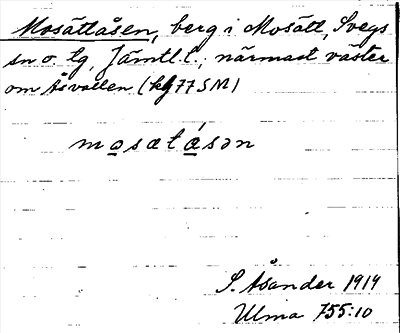 Mosätlåsen, berg i Mosätt, Svegs
sn o. tg, Jämtl. l., närmast väster
om Åsvallen (kbl 77 SM)
mosætásən
S. Åsander 1914
Ulma 755:10